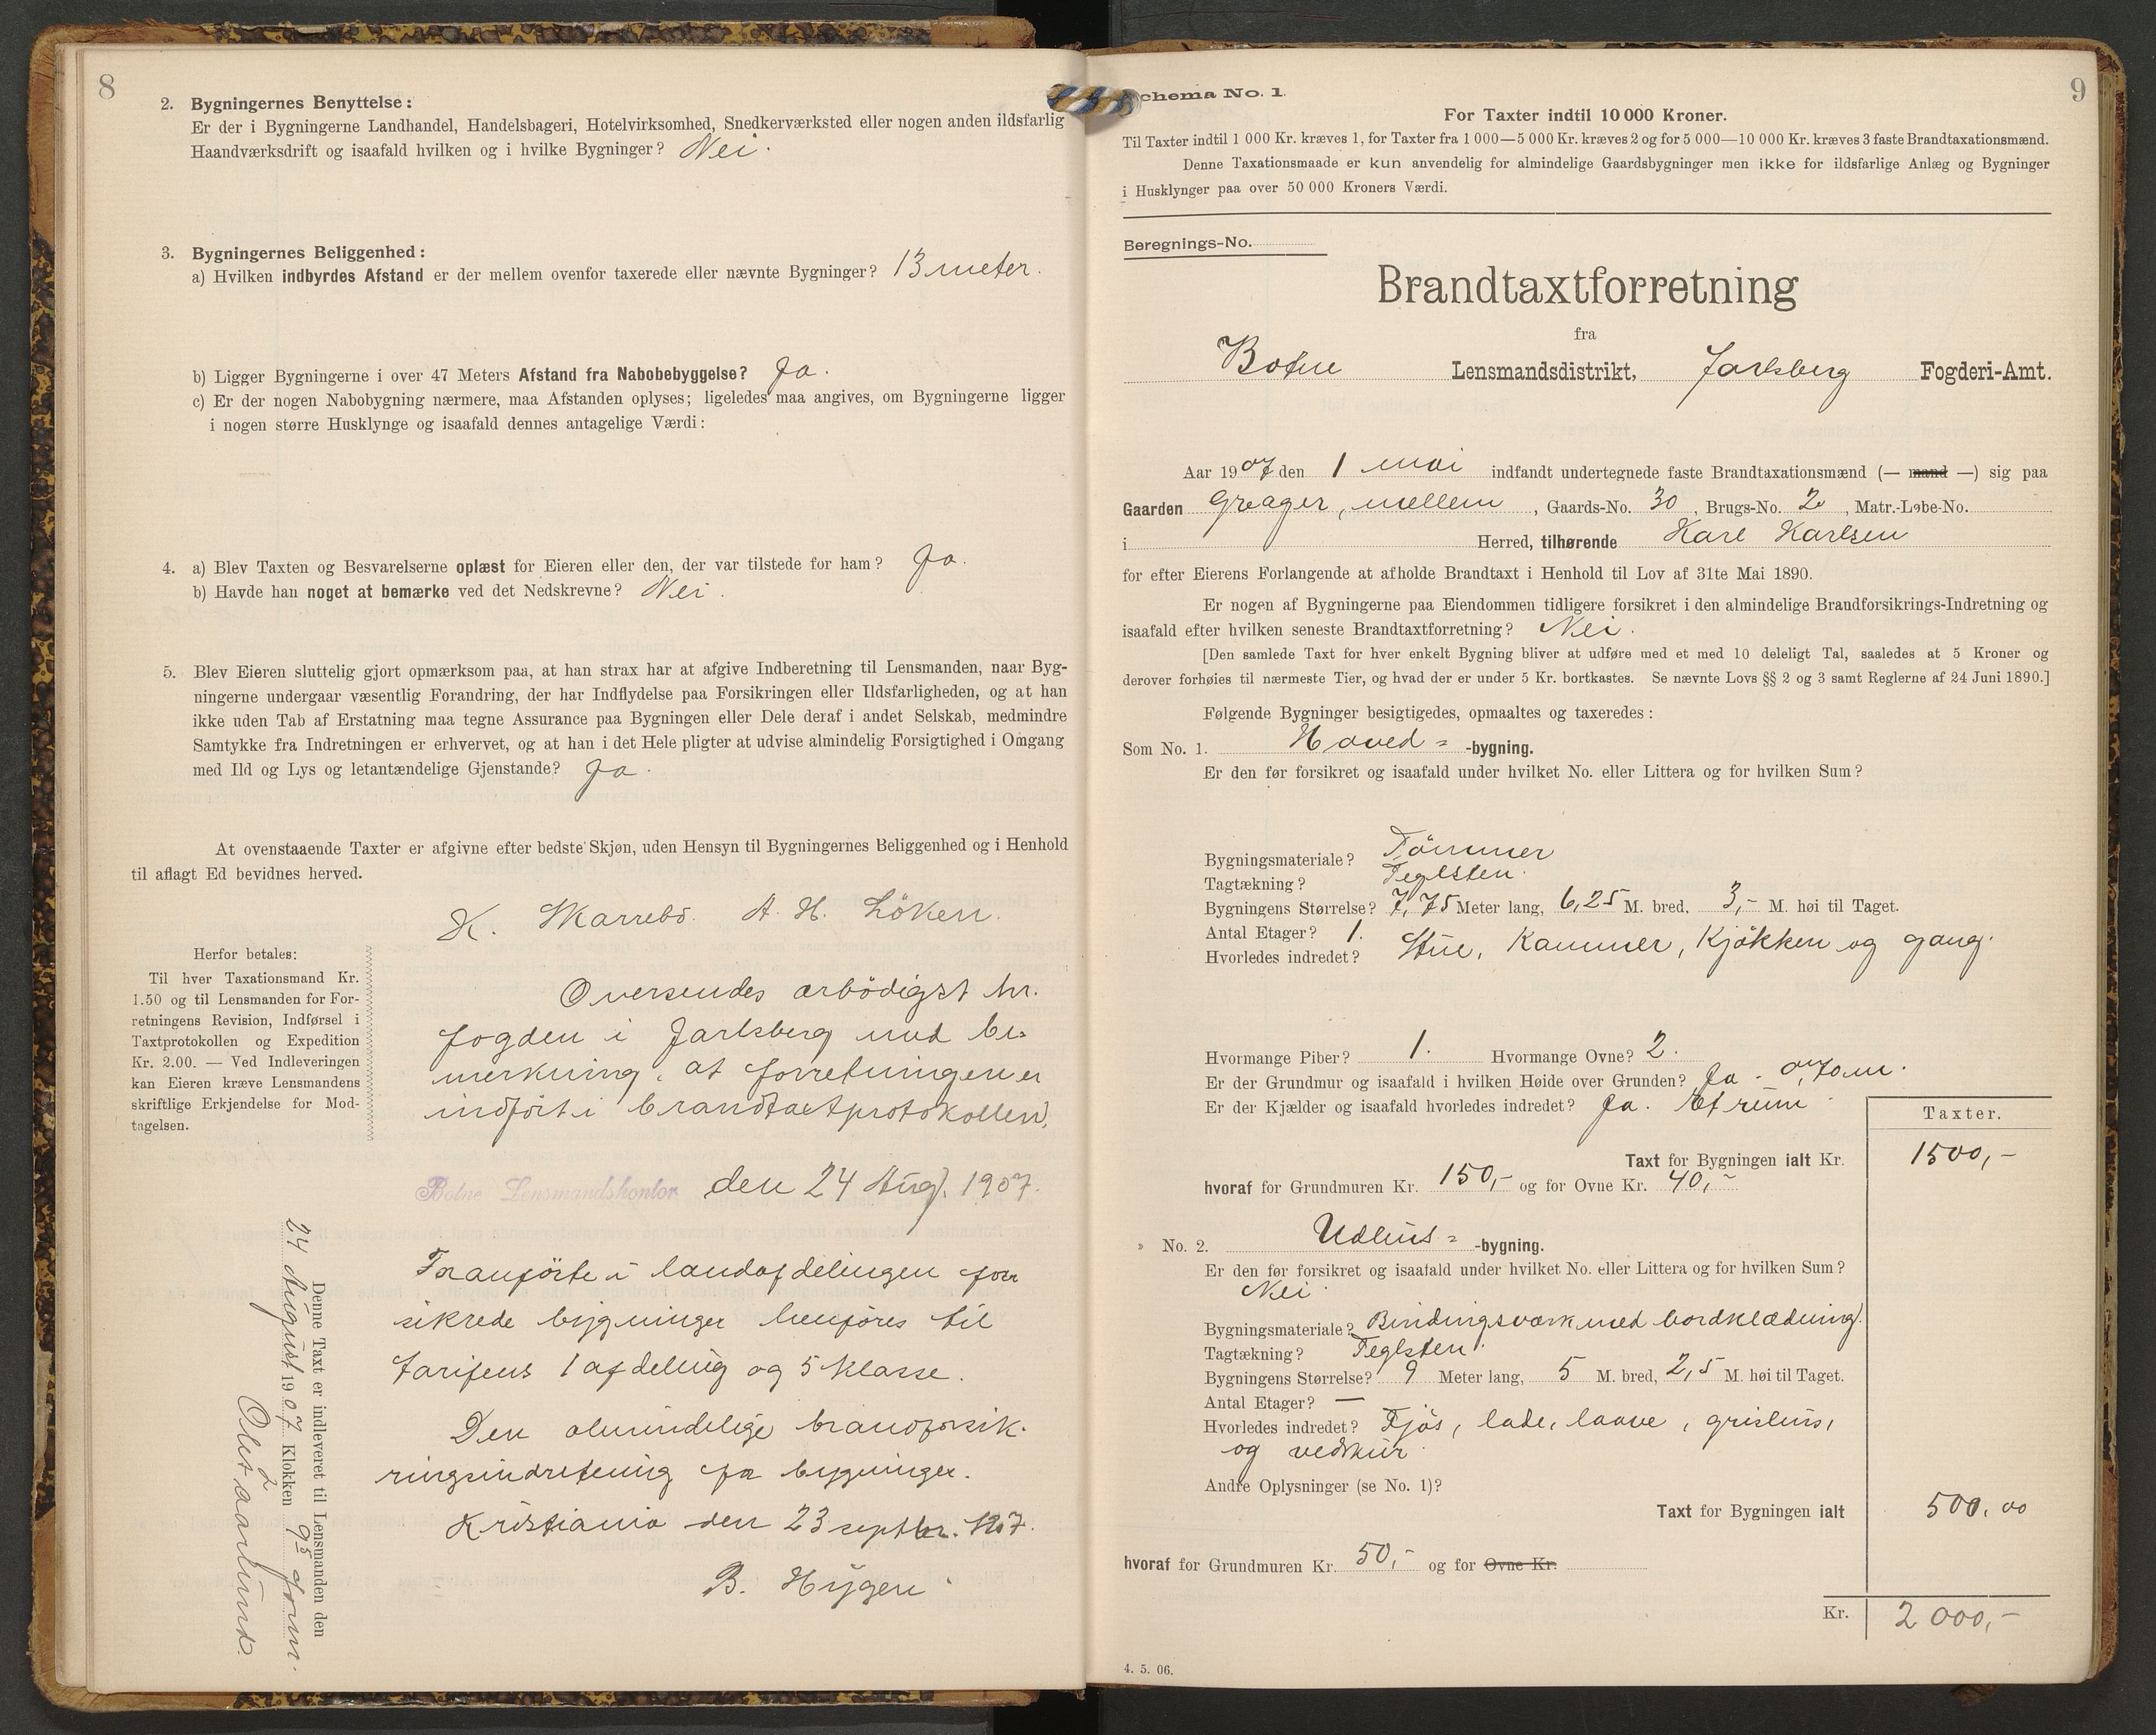 8
2. Bygningernes Benyttelse:
Er der i Bygningerne Landhandel, Handelsbageri, Hotelvirksomhed, Snedkerværksted eller nogen anden ildsfarlig
Haandværksdrift og isaafald hvilken og i hvilke Bygninger? Nei.
3. Bygningernes Beliggenhed:
a) Hvilken indbyrdes Afstand er der mellem ovenfor taxerede eller nævnte Bygninger? 13 meter.
b) Ligger Bygningerne i over 47 Meters Afstand fra Nabobebyggelse? Ja.
c) Er der nogen Nabobygning nærmere, maa Afstanden oplyses; ligeledes maa angives, om Bygningerne ligger
i nogen større Husklynge og isaafald dennes antagelige Værdi:
4. a) Blev Taxten og Besvarelserne oplæst for Eieren eller den, der var tilstede for ham? Ja.
b) Havde han noget at bemærke ved det Nedskrevne? Nei.
5. Blev Eieren sluttelig gjort opmærksom paa, at han strax har at afgive Indberetning til Lensmanden, naar Byg-
ningerne undergaar væsentlig Forandring, der har Indflydelse paa Forsikringen eller Ildsfarligheden, og at han
ikke uden Tab af Erstatning maa tegne Assurance paa Bygningen eller Dele deraf i andet Selskab, medmindre
Samtykke fra Indretningen er erhvervet, og at han i det Hele pligter at udvise almindelig Forsigtighed i Omgang
med Ild og Lys og letantændelige Gjenstande? Ja.
At ovenstaaende Taxter er afgivne efter bedste Skjøn, uden Hensyn til Bygningernes Beliggenhed og i Henhold
til aflagt Ed bevidnes herved.
K. Skarrebö. A. H. Löken.
Herfor betales:
Til hver Taxationsmand Kr.
1.50 og til Lensmanden for For-
retningens Revision, Indførsel i
Taxtprotokollen og Expedition
Kr. 2.00. — Ved Indleveringen
kan Eieren kræve Lensmandens
skriftlige Erkjendelse for Mod-
tagelsen.
Oversendes ærbödigst hr.
fogden i Jarlsberg med be-
merkning, at forretningen er
indfört i brandtaxtprotokollen.
Botne Lensmandskontor den 24 Aug. 1907.
Foranförte i landafdelingen for
sikrede bygninger henföres til
tarifens 1 afdeling og 5 klasse.
Den almindelige brandforsik-
ringsindretning for bygninger.
Kristiania den 23 septbr. 1907.
B. Hygen
Denne Taxt er indleveret til Lensmanden den
24 August 1907 Klokken 9 5 form.
9
Schema No. 1.
For Taxter indtil 10 000 Kroner.
Til Taxter indtil 1 000 Kr. kræves 1, for Taxter fra 1 000—5 000 Kr. kræves 2 og for 5 000—10 000 Kr. kræves 3 faste Brandtaxationsmænd.
Denne Taxationsmaade er kun anvendelig for almindelige Gaardsbygninger men ikke for ildsfarlige Anlæg og Bygninger
i Husklynger paa over 50 000 Kroners Værdi.
Beregnings-No.
Brandtaxtforretning
fra
Botne Lensmandsdistrikt, Jarlsberg Fogderi-Amt.
Aar 1907 den 1 mai indfandt undertegnede faste Brandtaxationsmænd (— mand —) sig paa
Gaarden Greager, mellem, Gaards-No. 30, Brugs-No. 2, Matr.-Løbe-No.
i Herred, tilhørende Karl Karlsen
for efter Eierens Forlangende at afholde Brandtaxt i Henhold til Lov af 31te Mai 1890.
Er nogen af Bygningerne paa Eiendommen tidligere forsikret i den almindelige Brandforsikrings-Indretning og
isaafald efter hvilken seneste Brandtaxtforretning? Nei.
[Den samlede Taxt for hver enkelt Bygning bliver at udføre med et med 10 deleligt Tal, saaledes at 5 Kroner og
derover forhøies til nærmeste Tier, og hvad der er under 5 Kr. bortkastes. Se nævnte Lovs §§ 2 og 3 samt Reglerne af 24 Juni 1890.]
Følgende Bygninger besigtigedes, opmaaltes og taxeredes:
Som No. 1. Hoved= -bygning.
Er den før forsikret og isaafald under hvilket No. eller Littera og for hvilken Sum?
Bygningsmateriale? Tömmer
Tagtækning? Teglsten.
Bygningens Størrelse? 7,75 Meter lang, 6,25 M. bred, 3,- M. høi til Taget.
Antal Etager? 1.
Hvorledes indredet? Stue, Kammer, Kjökken og gang.
Hvormange Piber? 1. Hvormange Ovne? 2.
Er der Grundmur og isaafald i hvilken Høide over Grunden? Ja - 0,70 m.
Er der Kjælder og isaafald hvorledes indredet? Ja. Et rum
Taxter.
Taxt for Bygningen ialt Kr. 1500,-
hvoraf for Grundmuren Kr. 150,- og for Ovne Kr. 40,-
» No. 2. Udhus= -bygning.
Er den før forsikret og isaafald under hvilket No. eller Littera og for hvilken Sum?
Nei.
Bygningsmateriale? Bindingsværk med bordklædning.
Tagtækning? Teglsten.
Bygningens Størrelse? 9 Meter lang, 5 M. bred, 2,5 M. høi til Taget.
Antal Etager? —
Hvorledes indredet? Fjös, lade, laave, grishus,
og vedskur.
Andre Oplysninger (se No. 1)?
Taxt for Bygningen ialt 500,00
hvoraf for Grundmuren Kr. 50,- og for Ovne Kr.
Kr. 2 000,-
4. 5. 06.